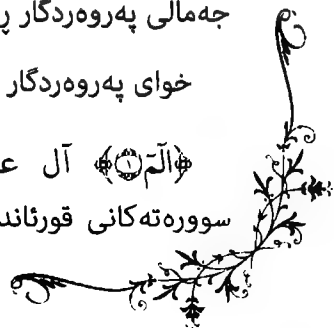 جەمالی پەروەردگار
خوای پەروەردگار
﴿الٓمٓ ۝١﴾ آل
سوورەتەکانی قورئاند